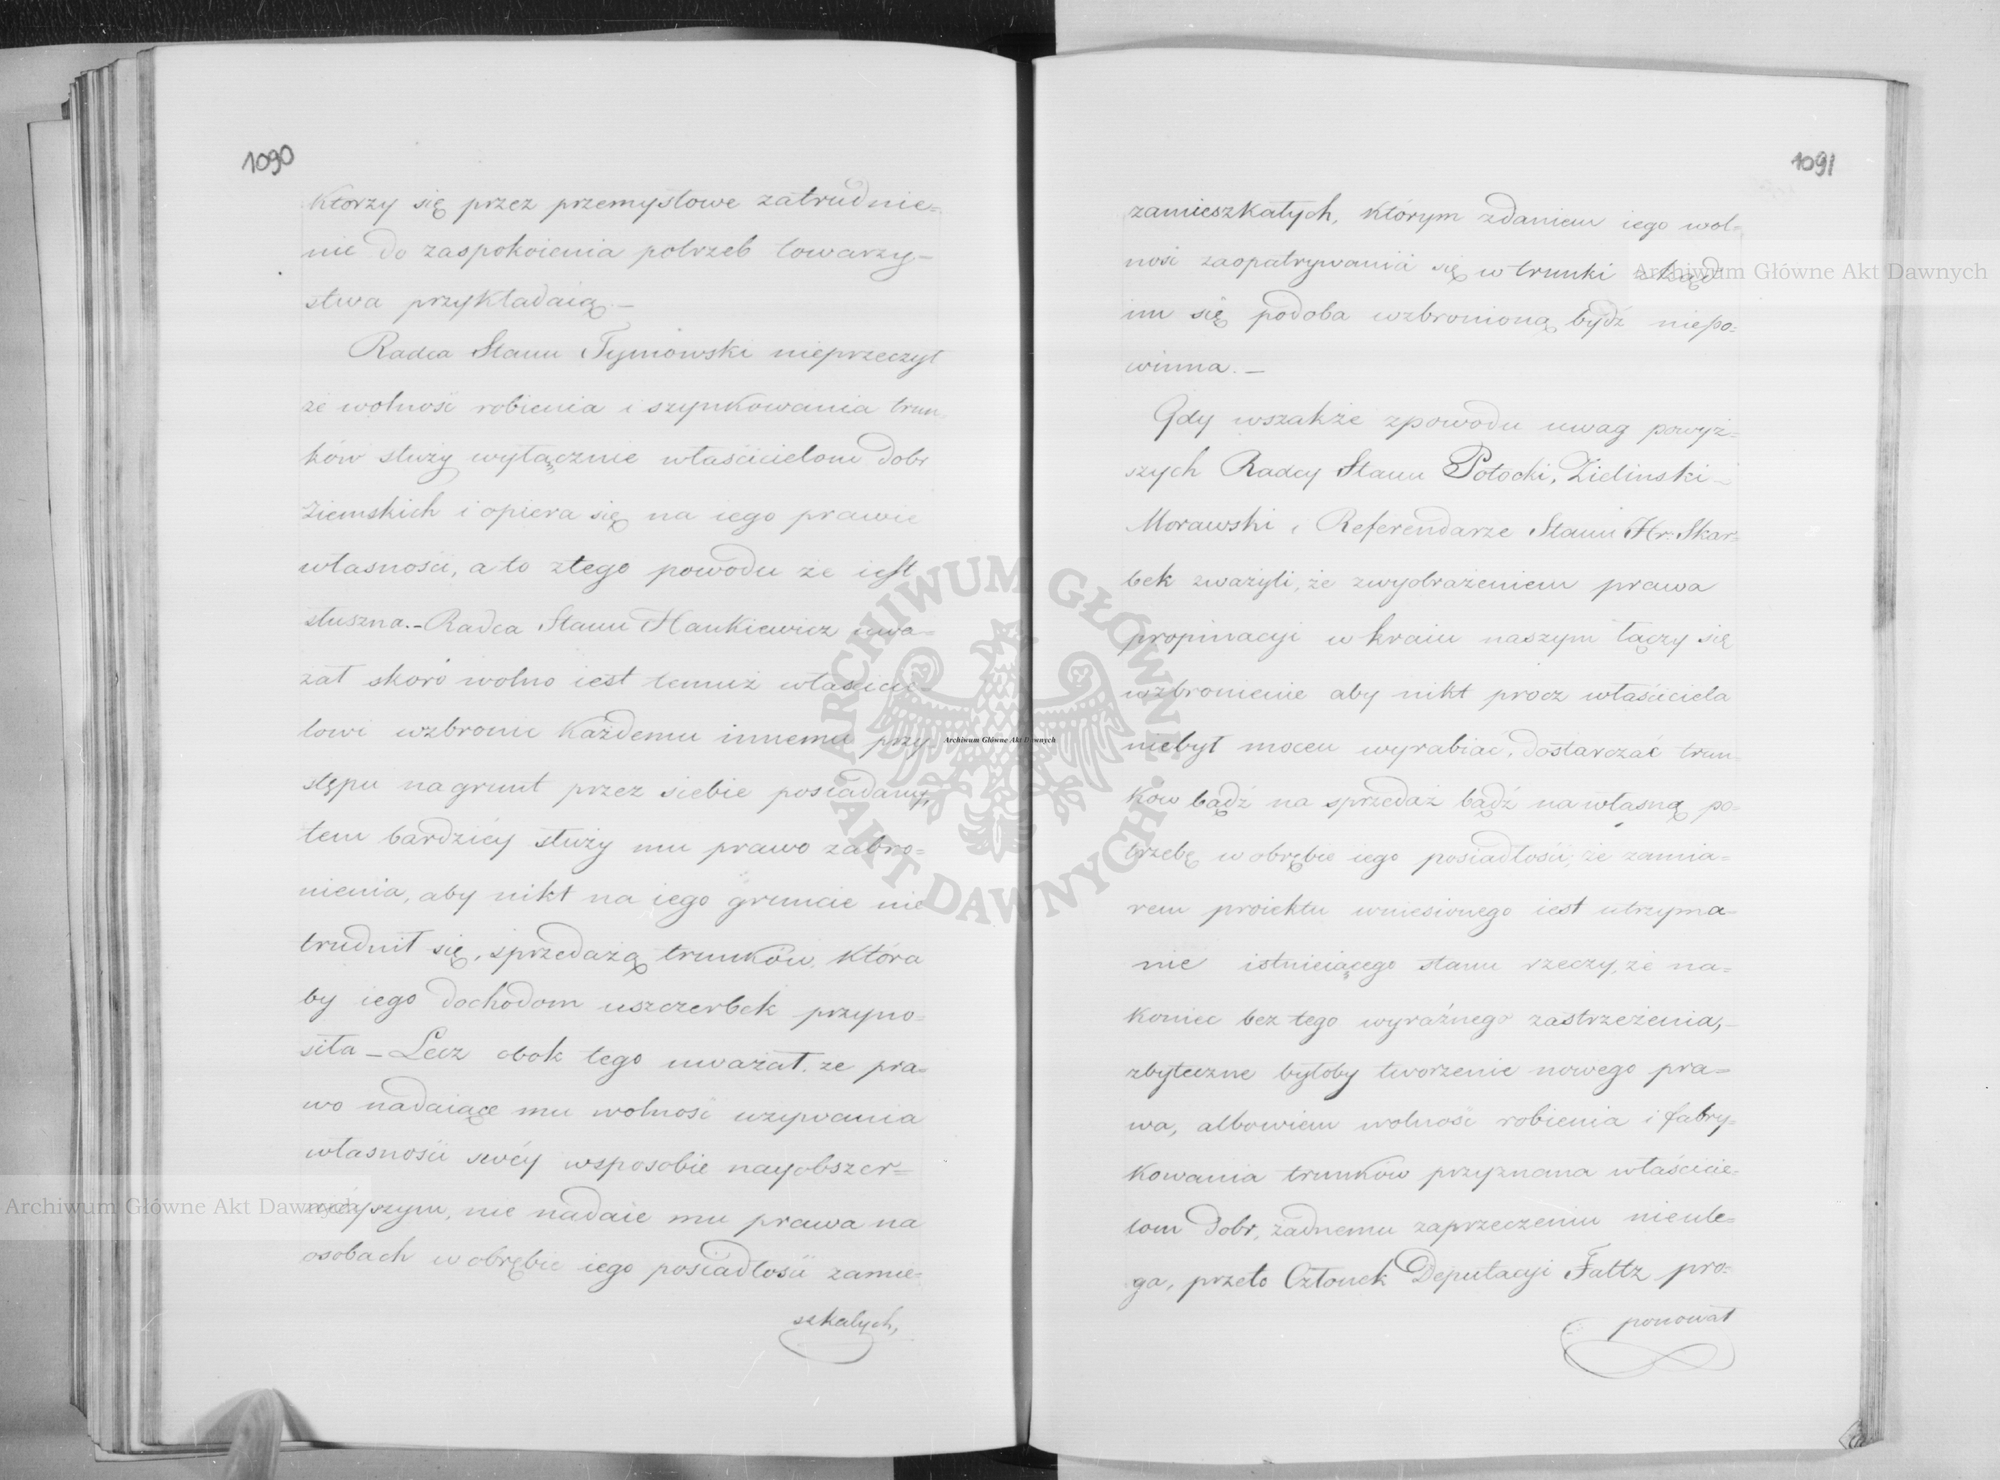 1090
którzy się przez przemysłowe zatrudnie=
nie do zaspokoienia potrzeb towarzy=
stwa przykładaią.–
Radca Stanu Tymowski nieprzeczył
że wolność robienia i szynkowania trun
ków służy wyłącznie właścicielom dobr
Ziemskich i opiera się na iego prawie
własności, a to ztego powodu że iest
słuszna.– Radca Stanu Hankiewicz uwa=
żał skoro wolno iest temuż właścicie=
lowi wzbronić każdemu innemu przy=
stępu na grunt przez siebie posiadany,
tem bardziéy służy mu prawo zabro=
nienia, aby nikt na iego gruncie nie
trudnił się, sprzedażą trunków, która
by iego dochodom uszczerbek przyno=
siła – Lecz obok tego uważał, że pra=
wo nadaiące mu wolność używania
własności swéy wsposobie nayobszer=
niéyszym, nie nadaie mu prawa na
osobach w obrębie iego posiadłości zamie=
szkałych,
1091
zamieszkałych, którym zdaniem iego wol=
ność zaopatrywania się w trunki zkąd
im się podoba wzbronioną bydź niepo=
winna.–
Gdy wszakże zpowodu uwag powyż=
szych Radcy Stanu Potocki, Zielinski
Morawski i Referendarze Stanu Hr: Skar=
bek zważyli, że zwyobrażeniem prawa
propinacyi w kraiu naszym łączy się
wzbronienie aby nikt procz właściciela
niebył mocen wyrabiać, dostarczać trun=
kow bądź na sprzedaż bądź na własną po=
trzebę w obrębie iego posiadłości, że zamia=
rem proiektu wniesionego iest utrzyma=
nie istnieiącego stanu rzeczy, że na=
koniec bez tego wyraźnego zastrzeżenia,
zbyteczne byłoby tworzenie nowego pra=
wa, albowiem wolność robienia i fabry=
kowania trunków przyznana właścicie=
lom dobr, żadnemu zaprzeczeniu nieule=
ga, przeto Członek Deputacyi Faltz pro=
ponował
Archiwum Główne Akt Dawnych
Archiwum Główne Akt Dawnych
Archiwum Główne Akt Dawnych
ARCHIWUM GŁÓWNE
AKT DAWNYCH